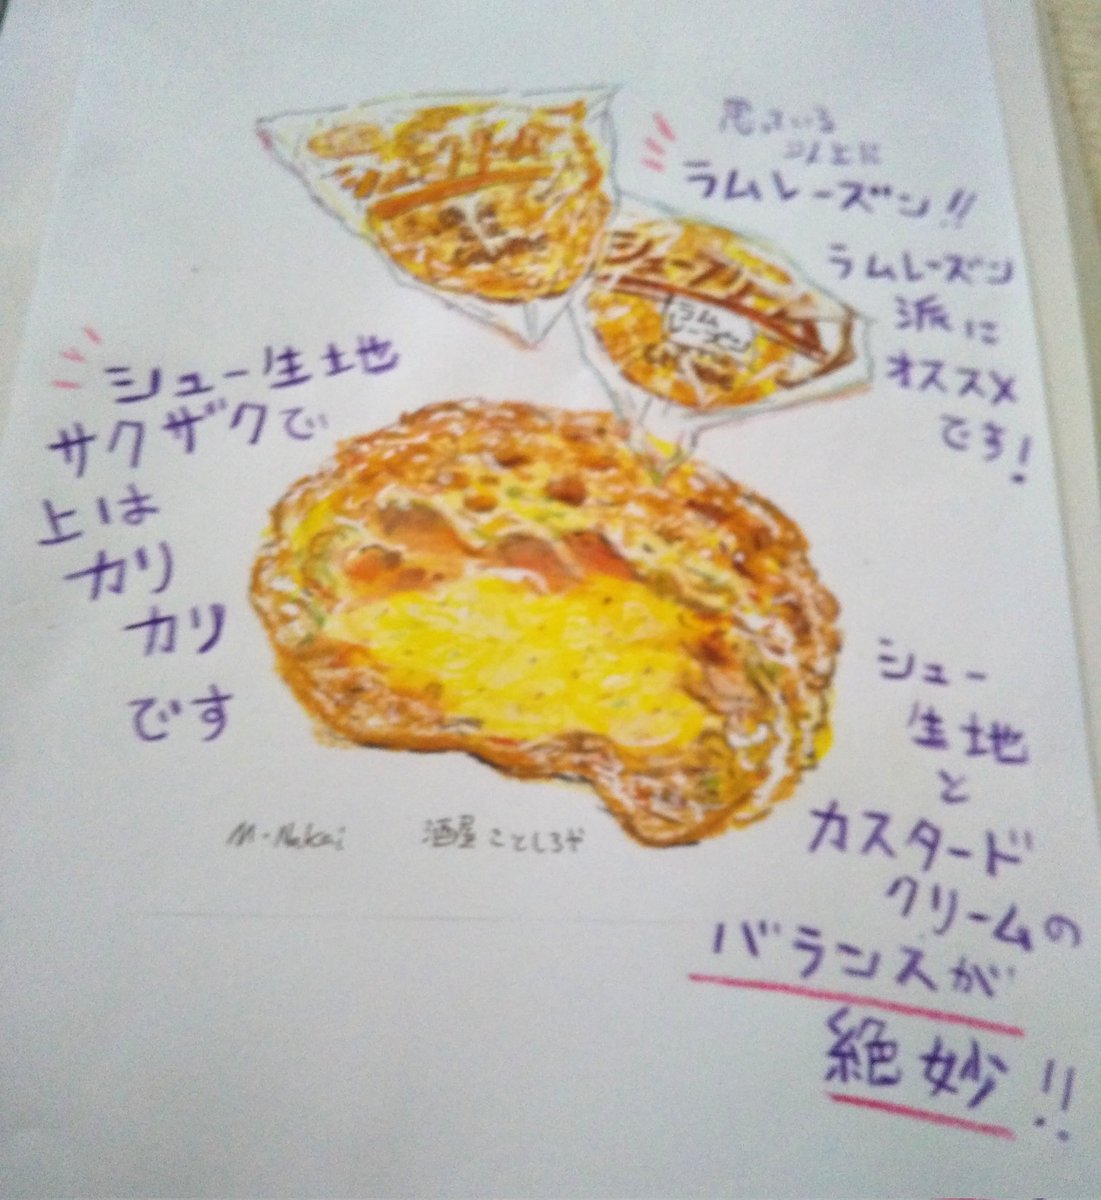 シュークリーム
思っている
以上に
ラムレーズン!!
ラムレーズン
派に
オススメ
です!
シュークリーム
ラム
レーズン
シュー生地
サクザクで
上は
カリ
カリ
です
シュー
生地
と
カスタード
クリームの
バランスが
絶妙!!
M-Nakai 酒屋ことしろや